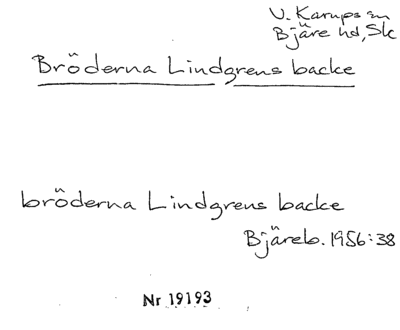 V. Karups sn
Bjäre hd, Sk
Bröderna Lindgrens backe
bröderna Lindgrens backe
Bjäreb. 1956:38
Nr 19193